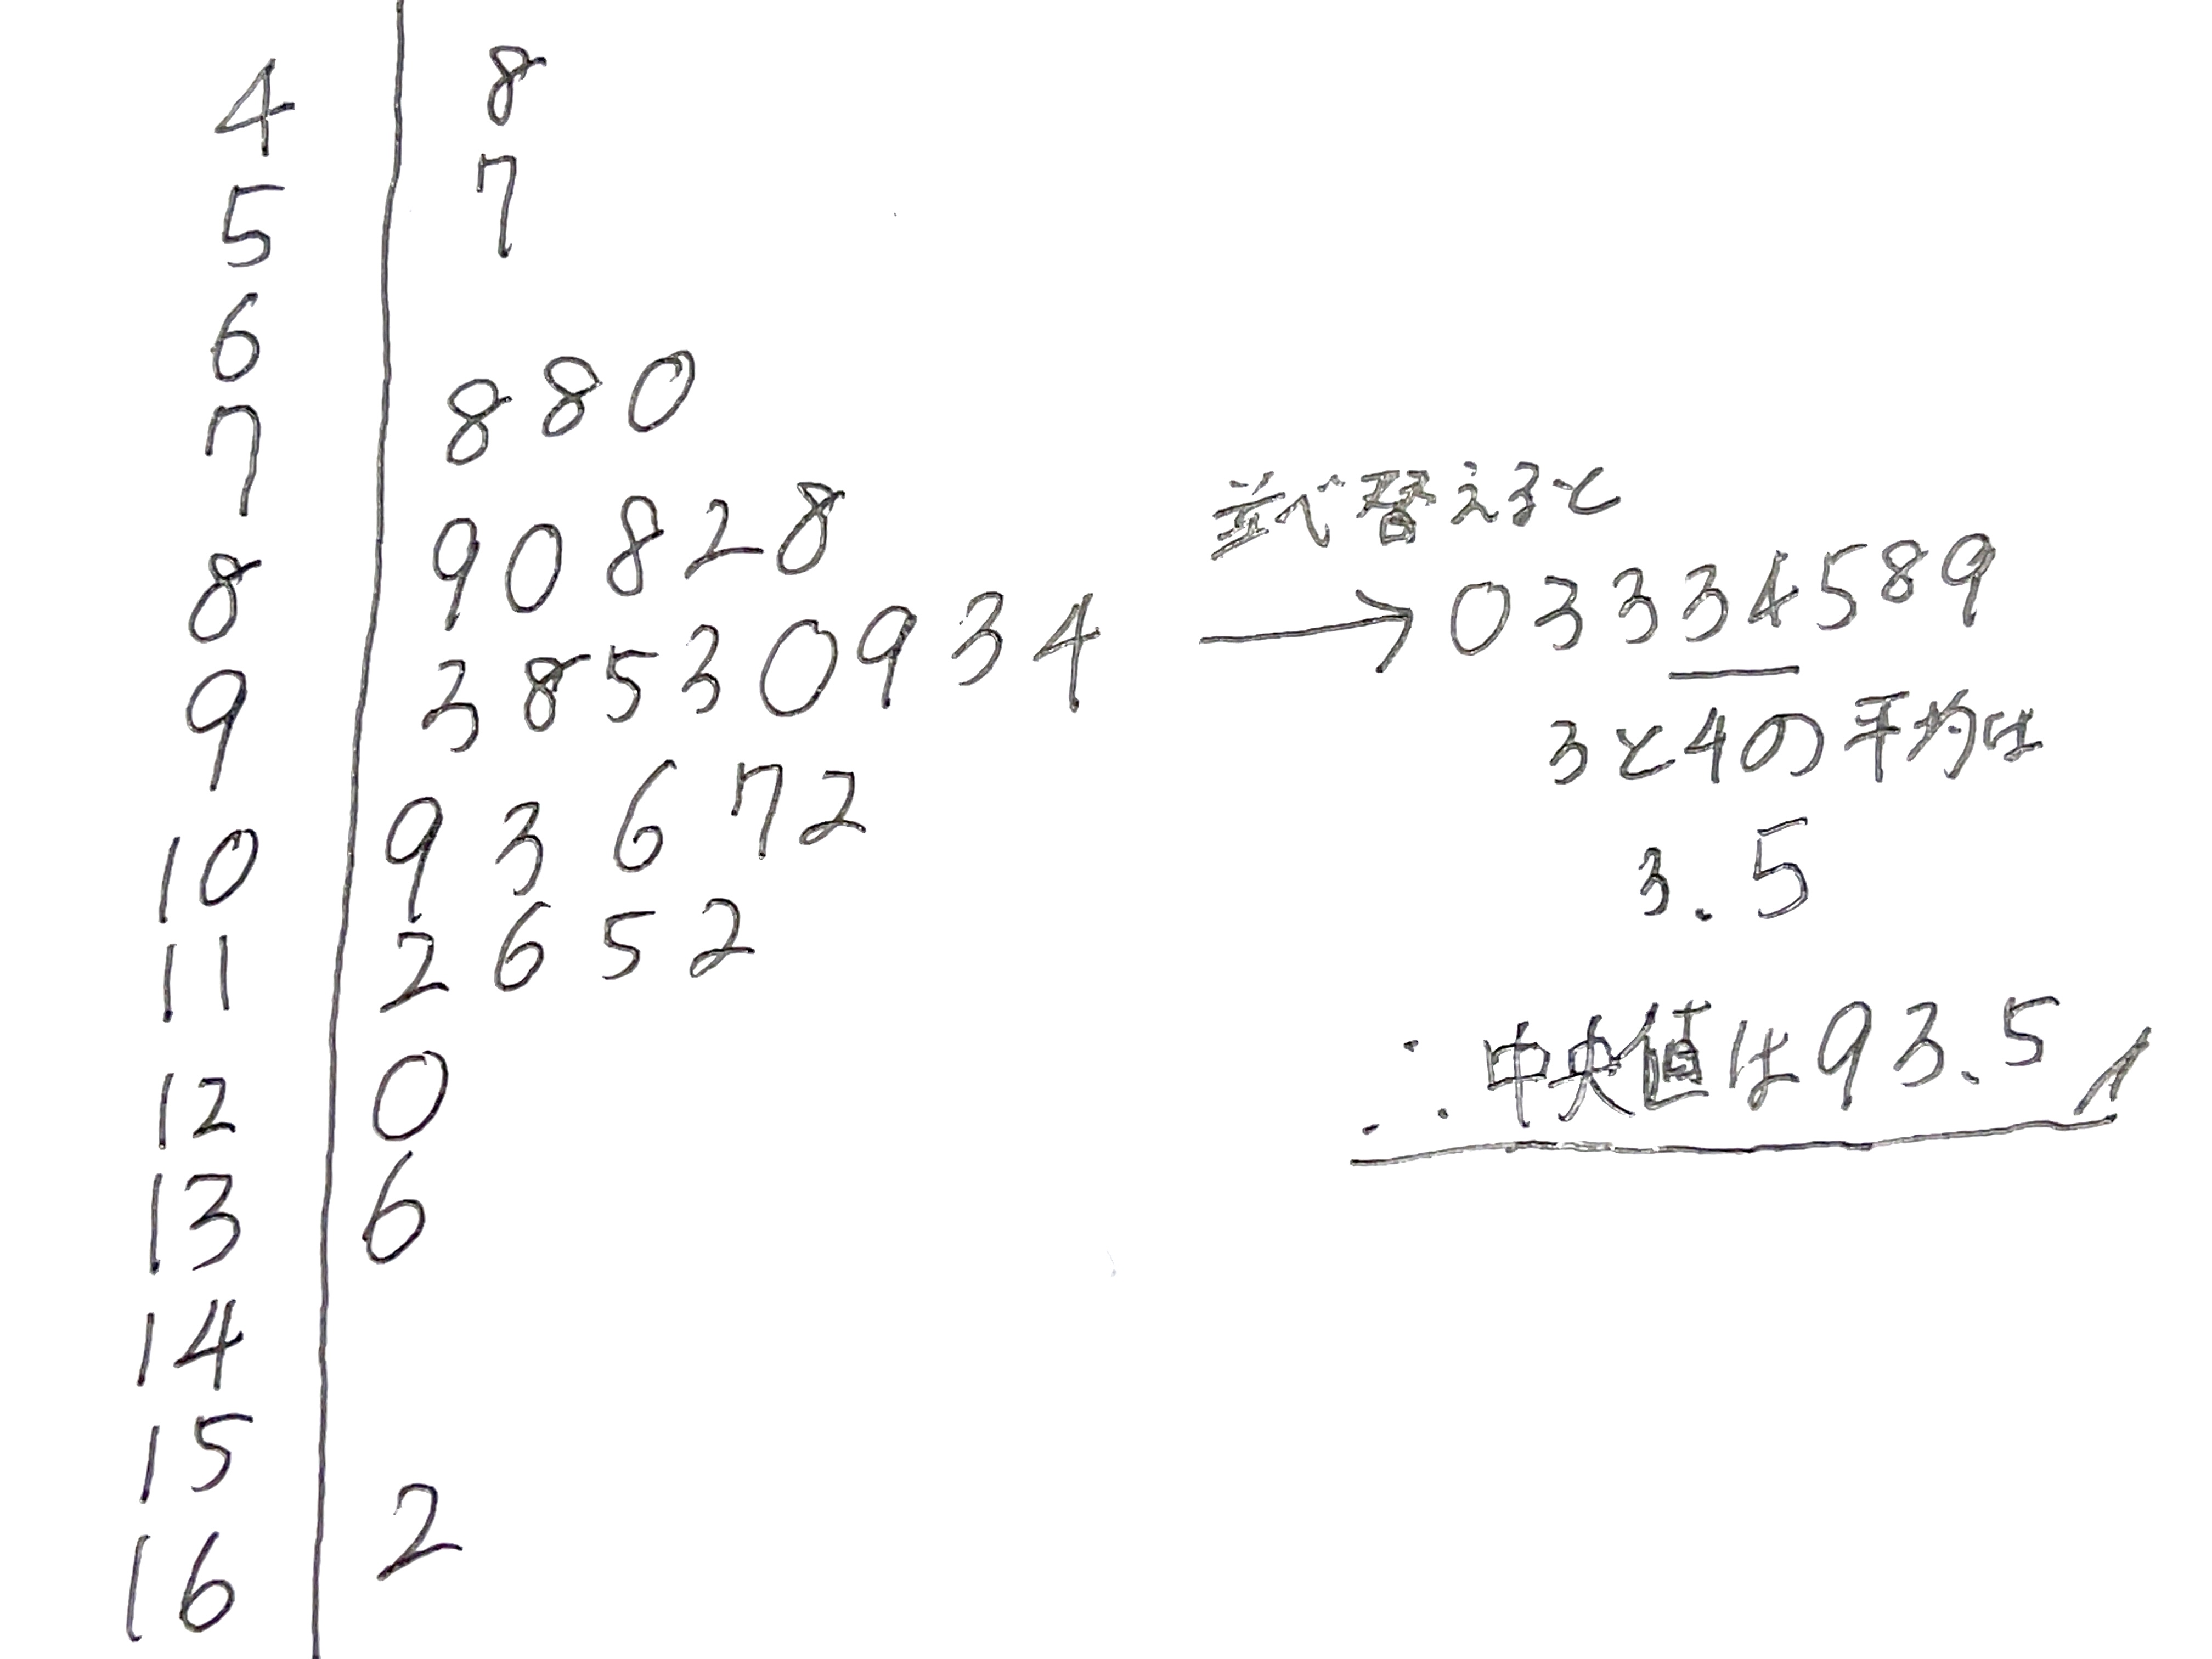 4 | 8
5 | 7
6 |
7 | 8 8 0
8 | 9 0 8 2 8
9 | 3 8 5 3 0 9 3 4
10 | 9 3 6 7 2
11 | 2 6 5 2
12 | 0
13 | 6
14 |
15 |
16 | 2
並べ替えると
→ 0 3 3 3 4 5 8 9
3と4の平均は
3.5
∴中央値は93.5